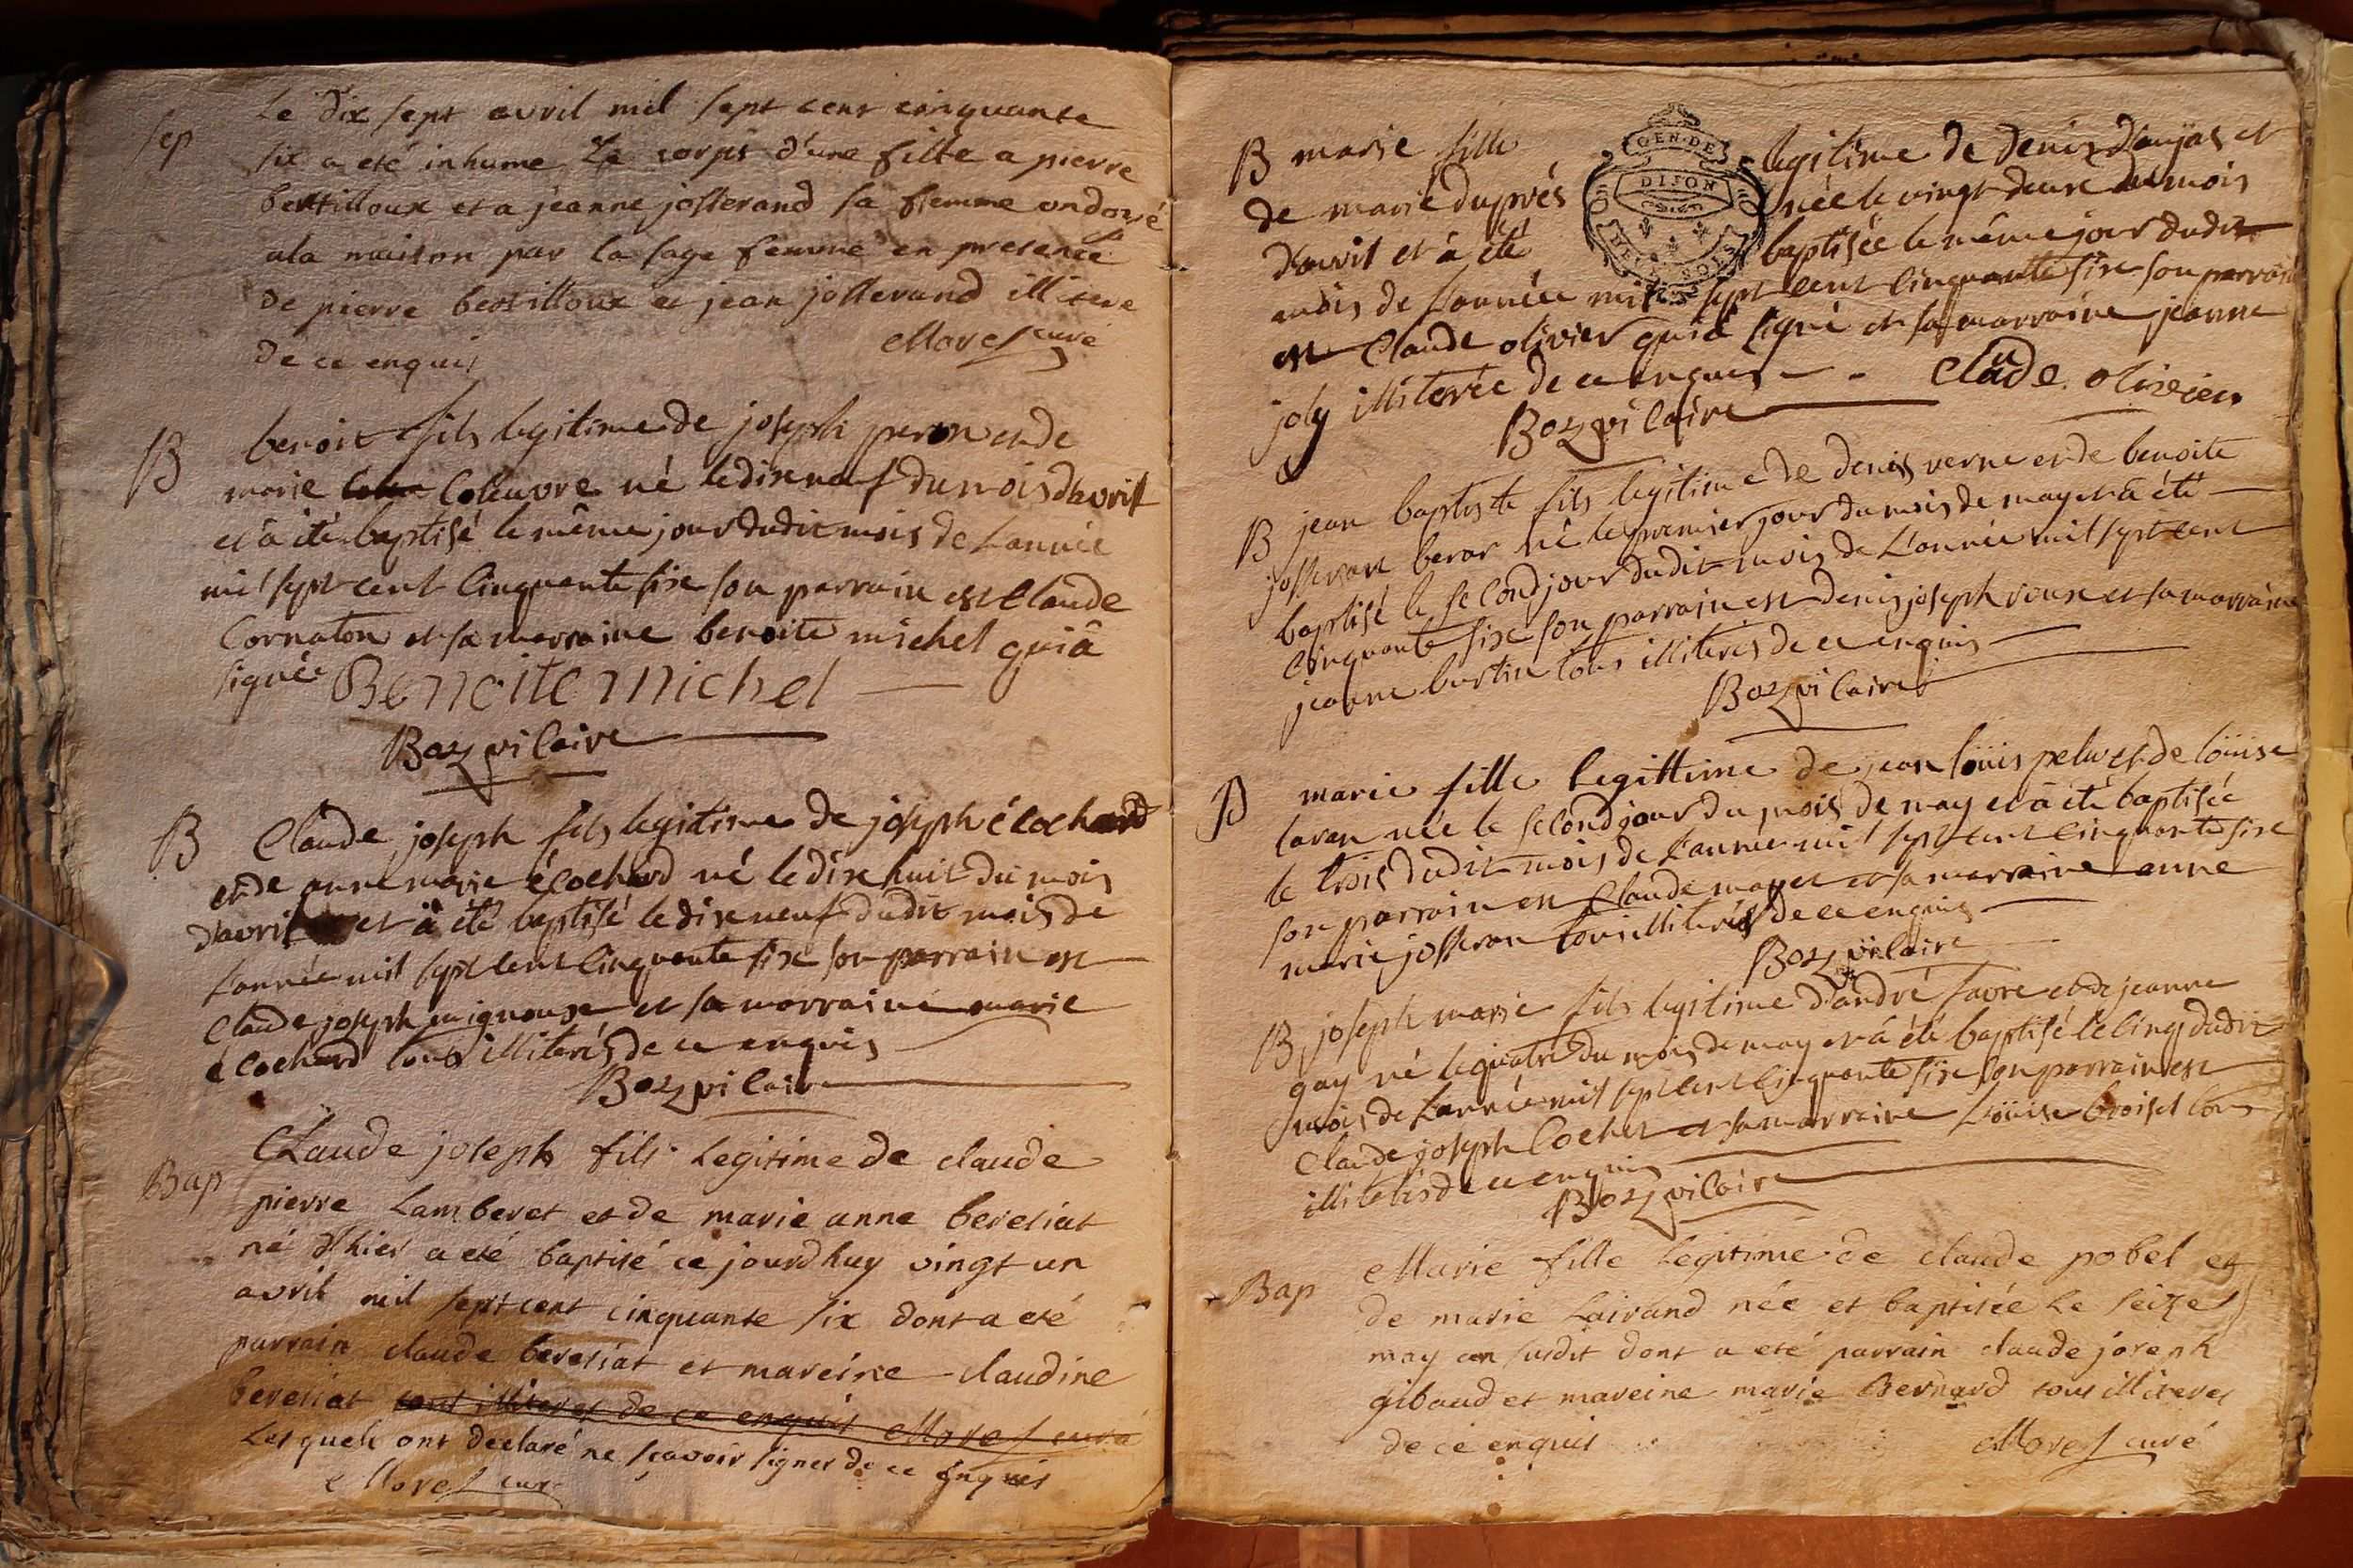 Sep
Le dix sept avril mil sept cent cinquante
six a eté inhume Le corps d'une fille a pierre
bertilloux et a jeanne josserand sa femme ondoyé
ala maison par la sage femme en presence
de pierre bertilloux et jean josserand illitere
de ce enquis Morel curé
B benoit fils legitime de joseph peron et de
marie Coleuvre né le dix neuf du mois d'avril
et à été baptisé le même jour dudit mois de L'année
mil sept cent Cinquante six son parrain est Claude
Cornaton et sa marraine benoite michel qui à
signée Benoite Michel
Boz vicaire
B Claude joseph fils legitime de joseph écochard
et de anne marie écochard né le dix huit du mois
d'avril et à été baptisé le dix neuf dudit mois de
L'année mil sept cent Cinquante six son parrain est
Claude joseph et sa marraine marie
écochard tous illiterés de ce enquis
Boz vicaire
Bap Claude joseph fils legitime de claude
pierre Lamberet et de marie anne beresiat
né d'hier a eté baptisé ce jourdhuy vingt un
avril mil sept cent cinquante six dont a eté
parrain claude beresiat et mareine claudine
beresiat tous illiteres de ce enquis Morel curé
Lesquels ont declaré ne sçavoir signer de ce enquis
Morel curé
B marie fille legitime de denis danjas et
de marie duprés née le vingt deux du mois
d'avril et à été baptisée le même jour dudit
mois de L'année mil sept cent Cinquante six son parrain
est Claude olivier qui à signé et sa marraine jeanne
joly illiterée de ce enquis Claude olivier
Boz vicaire
GEN. DE
DIJON
DEUX SOLS
B jean baptiste fils legitime de denis verne et de benoite
josseran né le premier jour du mois de may et à été
baptisé le second jour dudit mois de L'année mil sept cent
Cinquante six son parrain est denis joseph roux et sa marraine
jeanne burtin tous illiterés de ce enquis
Boz vicaire
B marie fille legittime de jean loüis et de loüise
née le second jour du mois de may et à été baptisée
le trois dudit mois de L'année mil sept cent Cinquante six
son parrain est Claude et sa marraine anne
marie josseran tous illiterés de ce enquis
Boz vicaire
B joseph marie fils legitime d'andré favre et de jeanne
gay né le quatre du mois de may et à été baptisé le cinq dudit
mois de L'année mil sept cent Cinquante six son parrain est
Claude joseph Cochet et sa marraine Loüise broiset tous
illiterés de ce enquis
Boz vicaire
Bap Marie fille legitime de claude pobel et
de marie Lairand née et baptisée Le seize
may an susdit dont a eté parrain claude joseph
gibaud et mareine marie Bernard tous illiteres
de ce enquis Morel curé